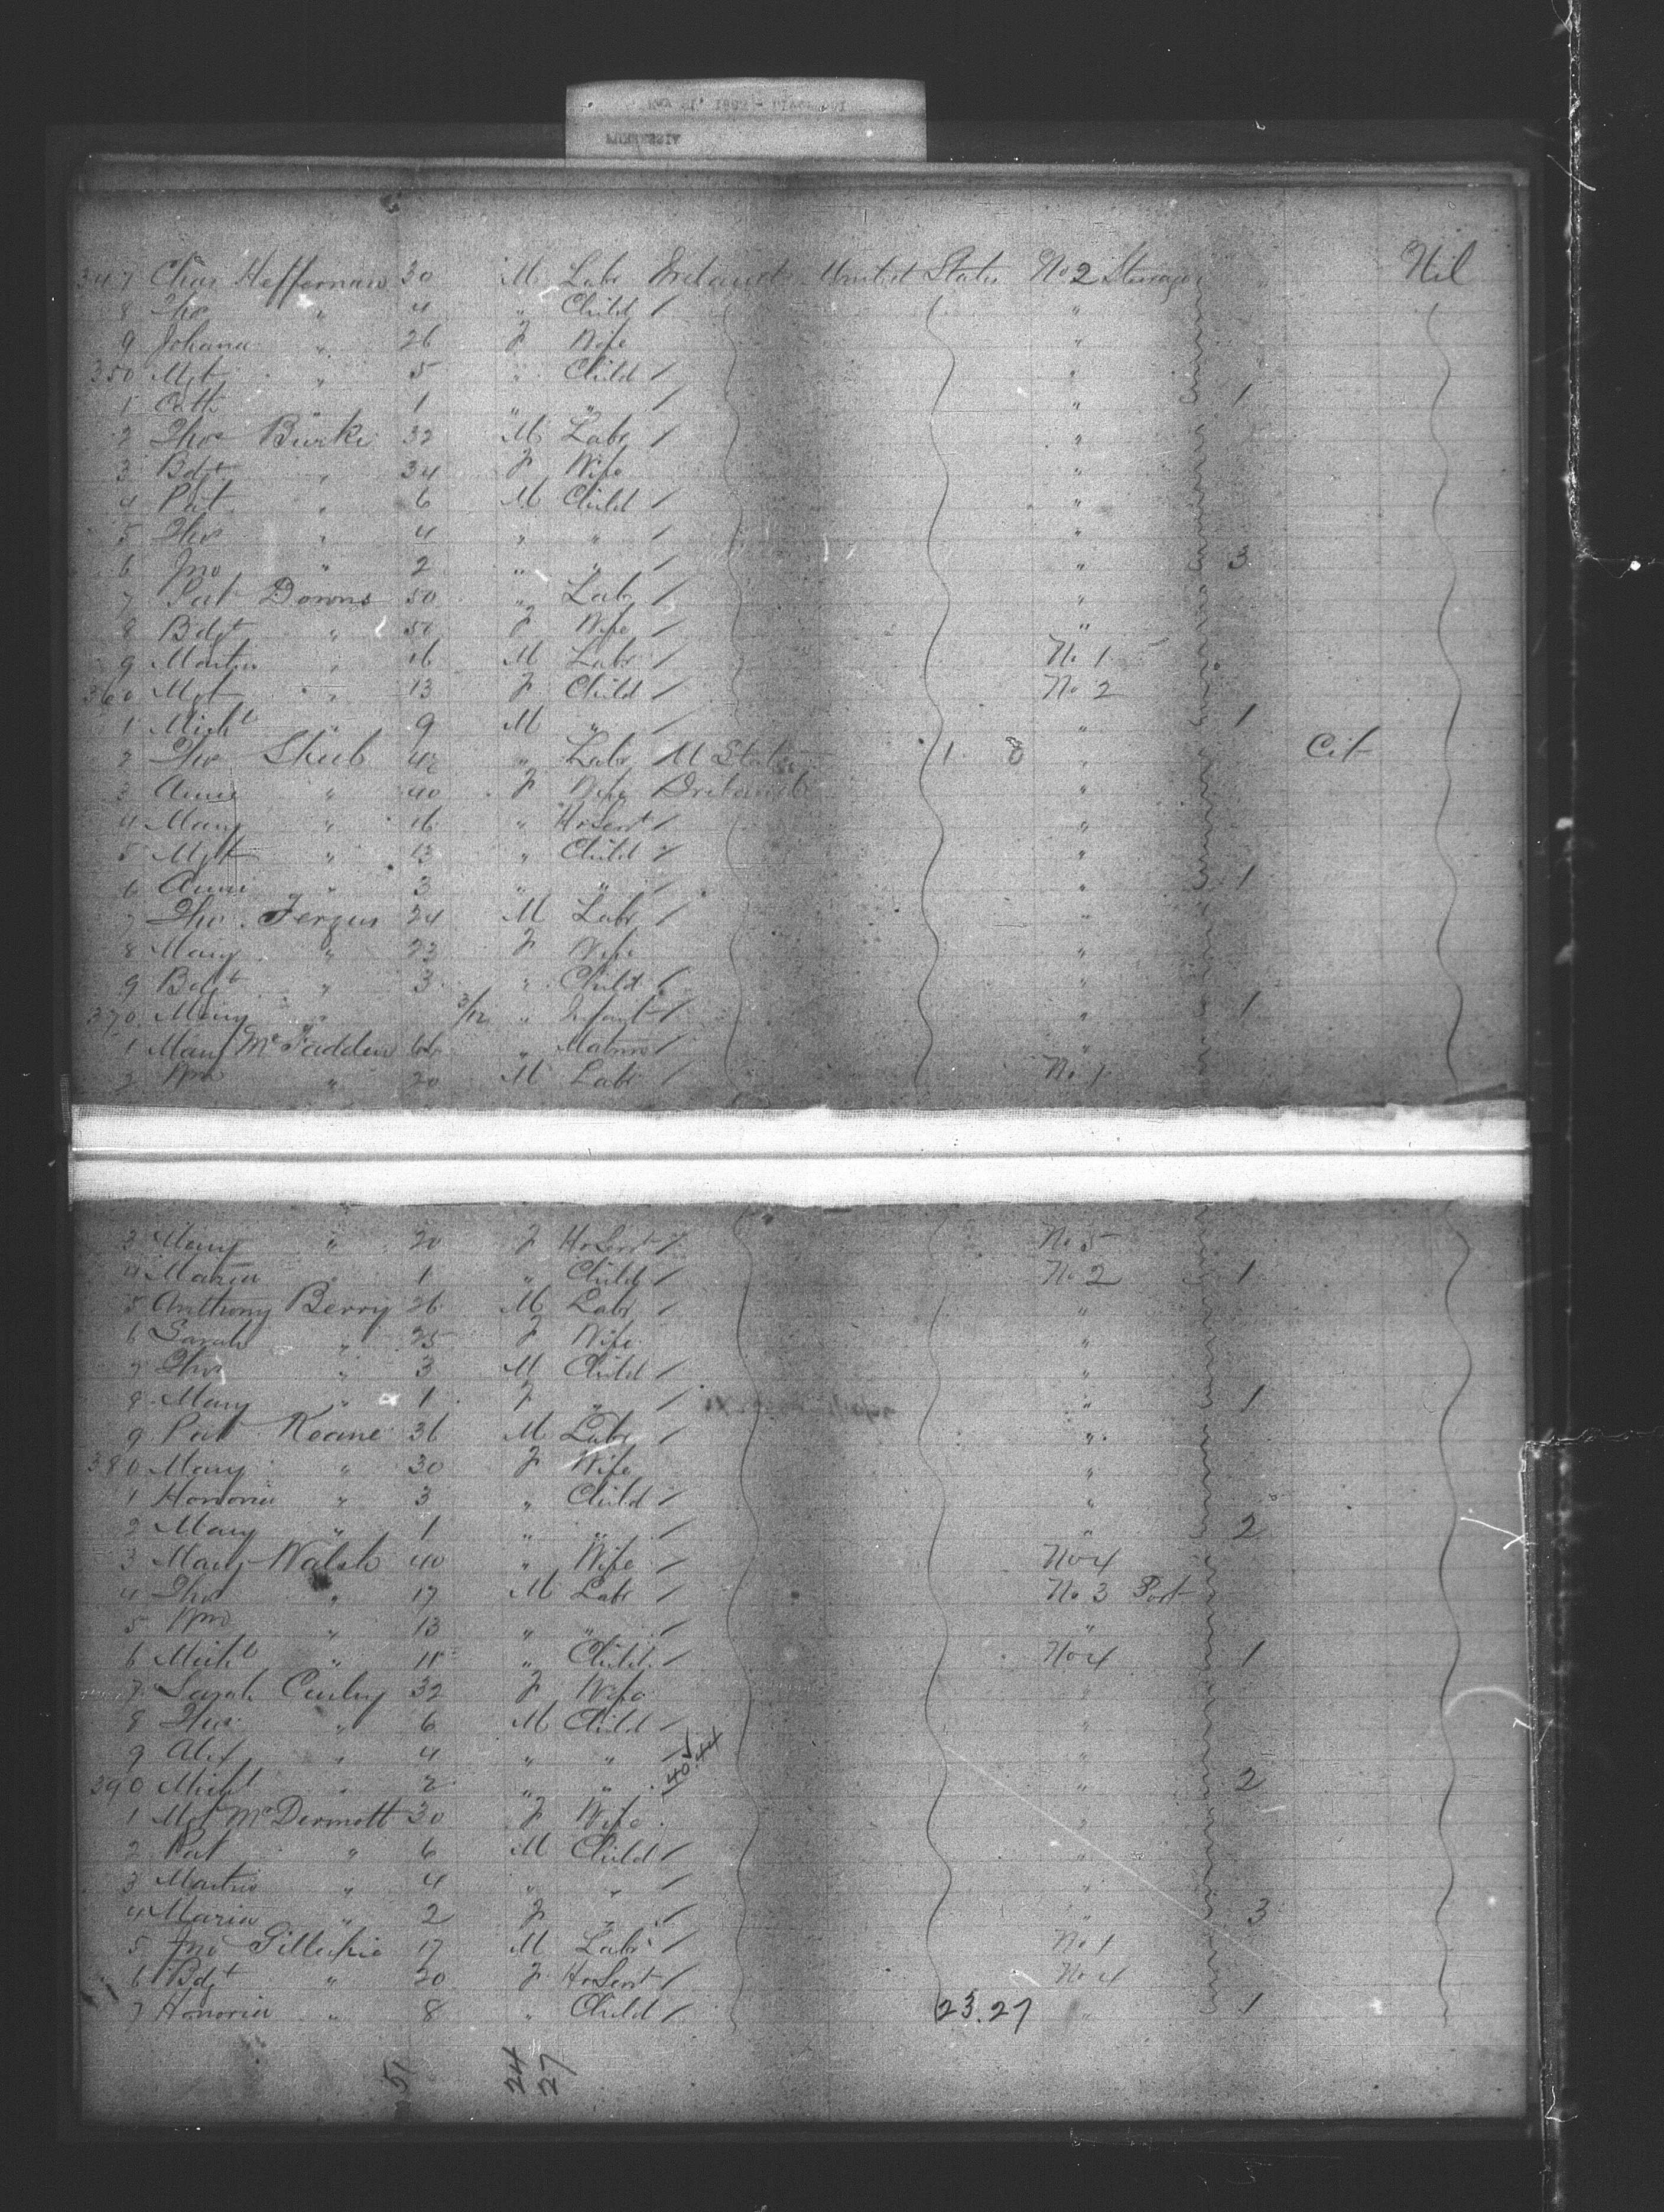 347 Chas Heffernan 30 M Labr Ireland United States No 2 Steerage Nil
8 Tho " 4 " Child / "
9 Johana " 26 F Wife "
350 Mgt " 5 " Child / "
1 Cath " 1 " " / " 1
2 Thos Burke 32 M Labr / "
3 Bdgt " 34 F Wife "
4 Pat " 6 M Child / "
5 Tho " 4 " " / "
6 Jno " 2 " " / " 3
7 Pat Downs 50 " Labr / "
8 Bdgt " 50 F Wife / "
9 Martin " 16 M Labr / No 1
360 Mgt " 13 F Child / No 2
1 Michl " 9 M " / " 1
2 Tho 42 " Labr U States 1 8 " Cit
3 Anne " 40 F Wife Ireland "
4 Mary " 16 " Ho Servt / "
5 Mgt " 13 " Child / "
6 Anne " 3 " " / " 1
7 Tho Fergus 24 M Labr / "
8 Mary " 23 F Wife "
9 Bdgt " 3 " Child / "
370 Mary " 3/12 " Infant / " 1
1 Mary McFadden " Matron / "
2 Wm " 20 M Labr / No 1
3 Mary " 20 F Ho Servt / No 5
4 Maria " 1 " Child / No 2 1
5 Anthony Berry 26 M Labr / "
6 Sarah " 25 F Wife "
7 Tho " 3 M Child / "
8 Mary " 1 F " / " 1
9 Pat Keane 36 M Labr / "
380 Mary " 30 F Wife "
1 Honoria " 3 " Child / "
2 Mary " 1 " " / " 2
3 Mary Walsh 40 " Wife / No 4
4 Tho " 17 M Labr / No 3 Port
5 Wm " 13 " " / "
6 Michl " 11 " Child / No 4 1
7 Sarah 32 F Wife "
8 Thos " 6 M Child / "
9 Alex " 4 " " / "
390 Michl " 2 " " / " 2
1 Mgt McDermott 30 F Wife "
2 Pat " 6 M Child / "
3 Martin " 4 " " / "
4 Maria " 2 F " / " 3
5 Jno 17 M Labr / No 1
6 Bdgt " 20 F Ho Servt / No 4
7 Honoria " 8 " Child / 23.27 " 1
51 24 27